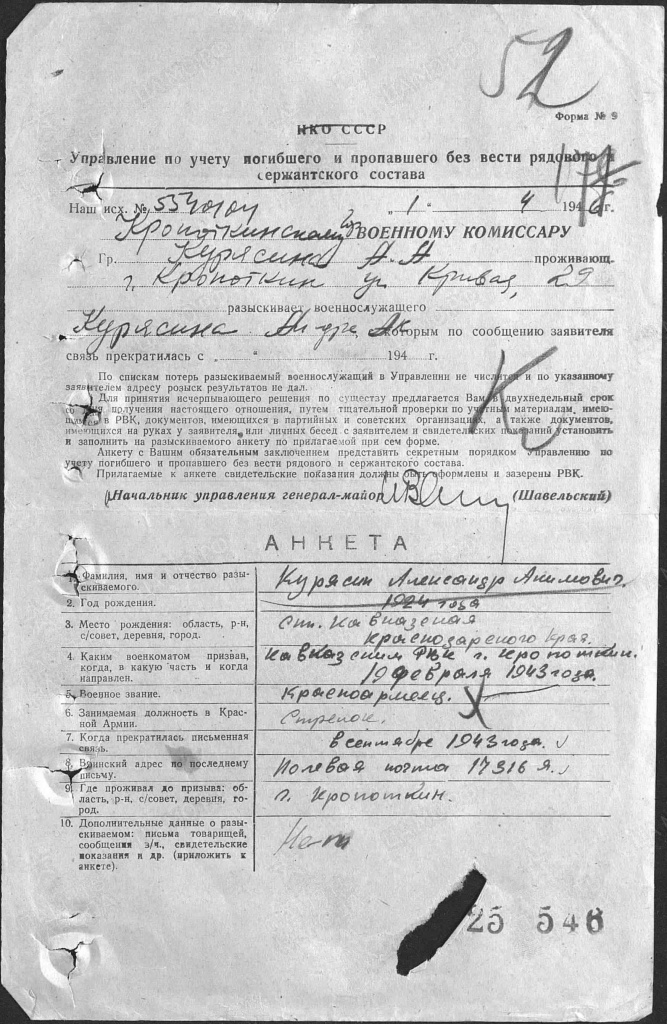 52
Форма № 9
НКО СССР
Управление по учету погибшего и пропавшего без вести рядового и
сержантского состава
Наш исх. № „1“ 4 194 г.
Кропоткинскому ВОЕННОМУ КОМИССАРУ
Гр. Курясина А. А проживающ.
г. Кропоткин ул Кривая, 29
разыскивает военнослужащего
Курясина которым по сообщению заявителя
связь прекратилась с „ “ 194 г.
По спискам потерь разыскиваемый военнослужащий в Управлении не числится и по указанному
заявителем адресу розыск результатов не дал.
Для принятия исчерпывающего решения по существу предлагается Вам в двухнедельный срок
со дня получения настоящего отношения, путем тщательной проверки по учетным материалам, имею-
щимся в РВК, документов, имеющихся в партийных и советских организациях, а также документов,
имеющихся на руках у заявителя, или личных бесед с заявителем и свидетельских показаний установить
и заполнить на разыскиваемого анкету по прилагаемой при сем форме.
Анкету с Вашим обязательным заключением представить секретным порядком Управлению по
учету погибшего и пропавшего без вести рядового и сержантского состава.
Прилагаемые к анкете свидетельские показания должны быть оформлены и заверены РВК.
Начальник управления генерал-майор (Шавельский)
К
АНКЕТА
1. Фамилия, имя и отчество разы-
скиваемого.
Курясин Александр Акимович.
2. Год рождения.
1924 года
3. Место рождения: область, р-н,
с/совет, деревня, город.
Ст. Кавказская
Краснодарского Края.
4. Каким военкоматом призван,
когда, в какую часть и когда
направлен.
Кавказским РВК г. Кропоткин.
19 февраля 1943 года.
5. Военное звание.
Красноармеец.
6. Занимаемая должность в Крас-
ной Армии.
Стрелок.
7. Когда прекратилась письменная
связь.
в сентябре 1943 года.
8. Воинский адрес по последнему
письму.
Полевая почта 17316 Я.
9. Где проживал до призыва: об-
ласть, р-н, с/совет, деревня, го-
род.
г. Кропоткин.
10. Дополнительные данные о разы-
скиваемом: письма товарищей,
сообщения в/ч., свидетельские
показания и др. (приложить к
анкете).
Нет
25 546